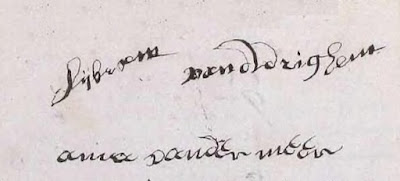 Sijbrant vand drighem
anna vander meer